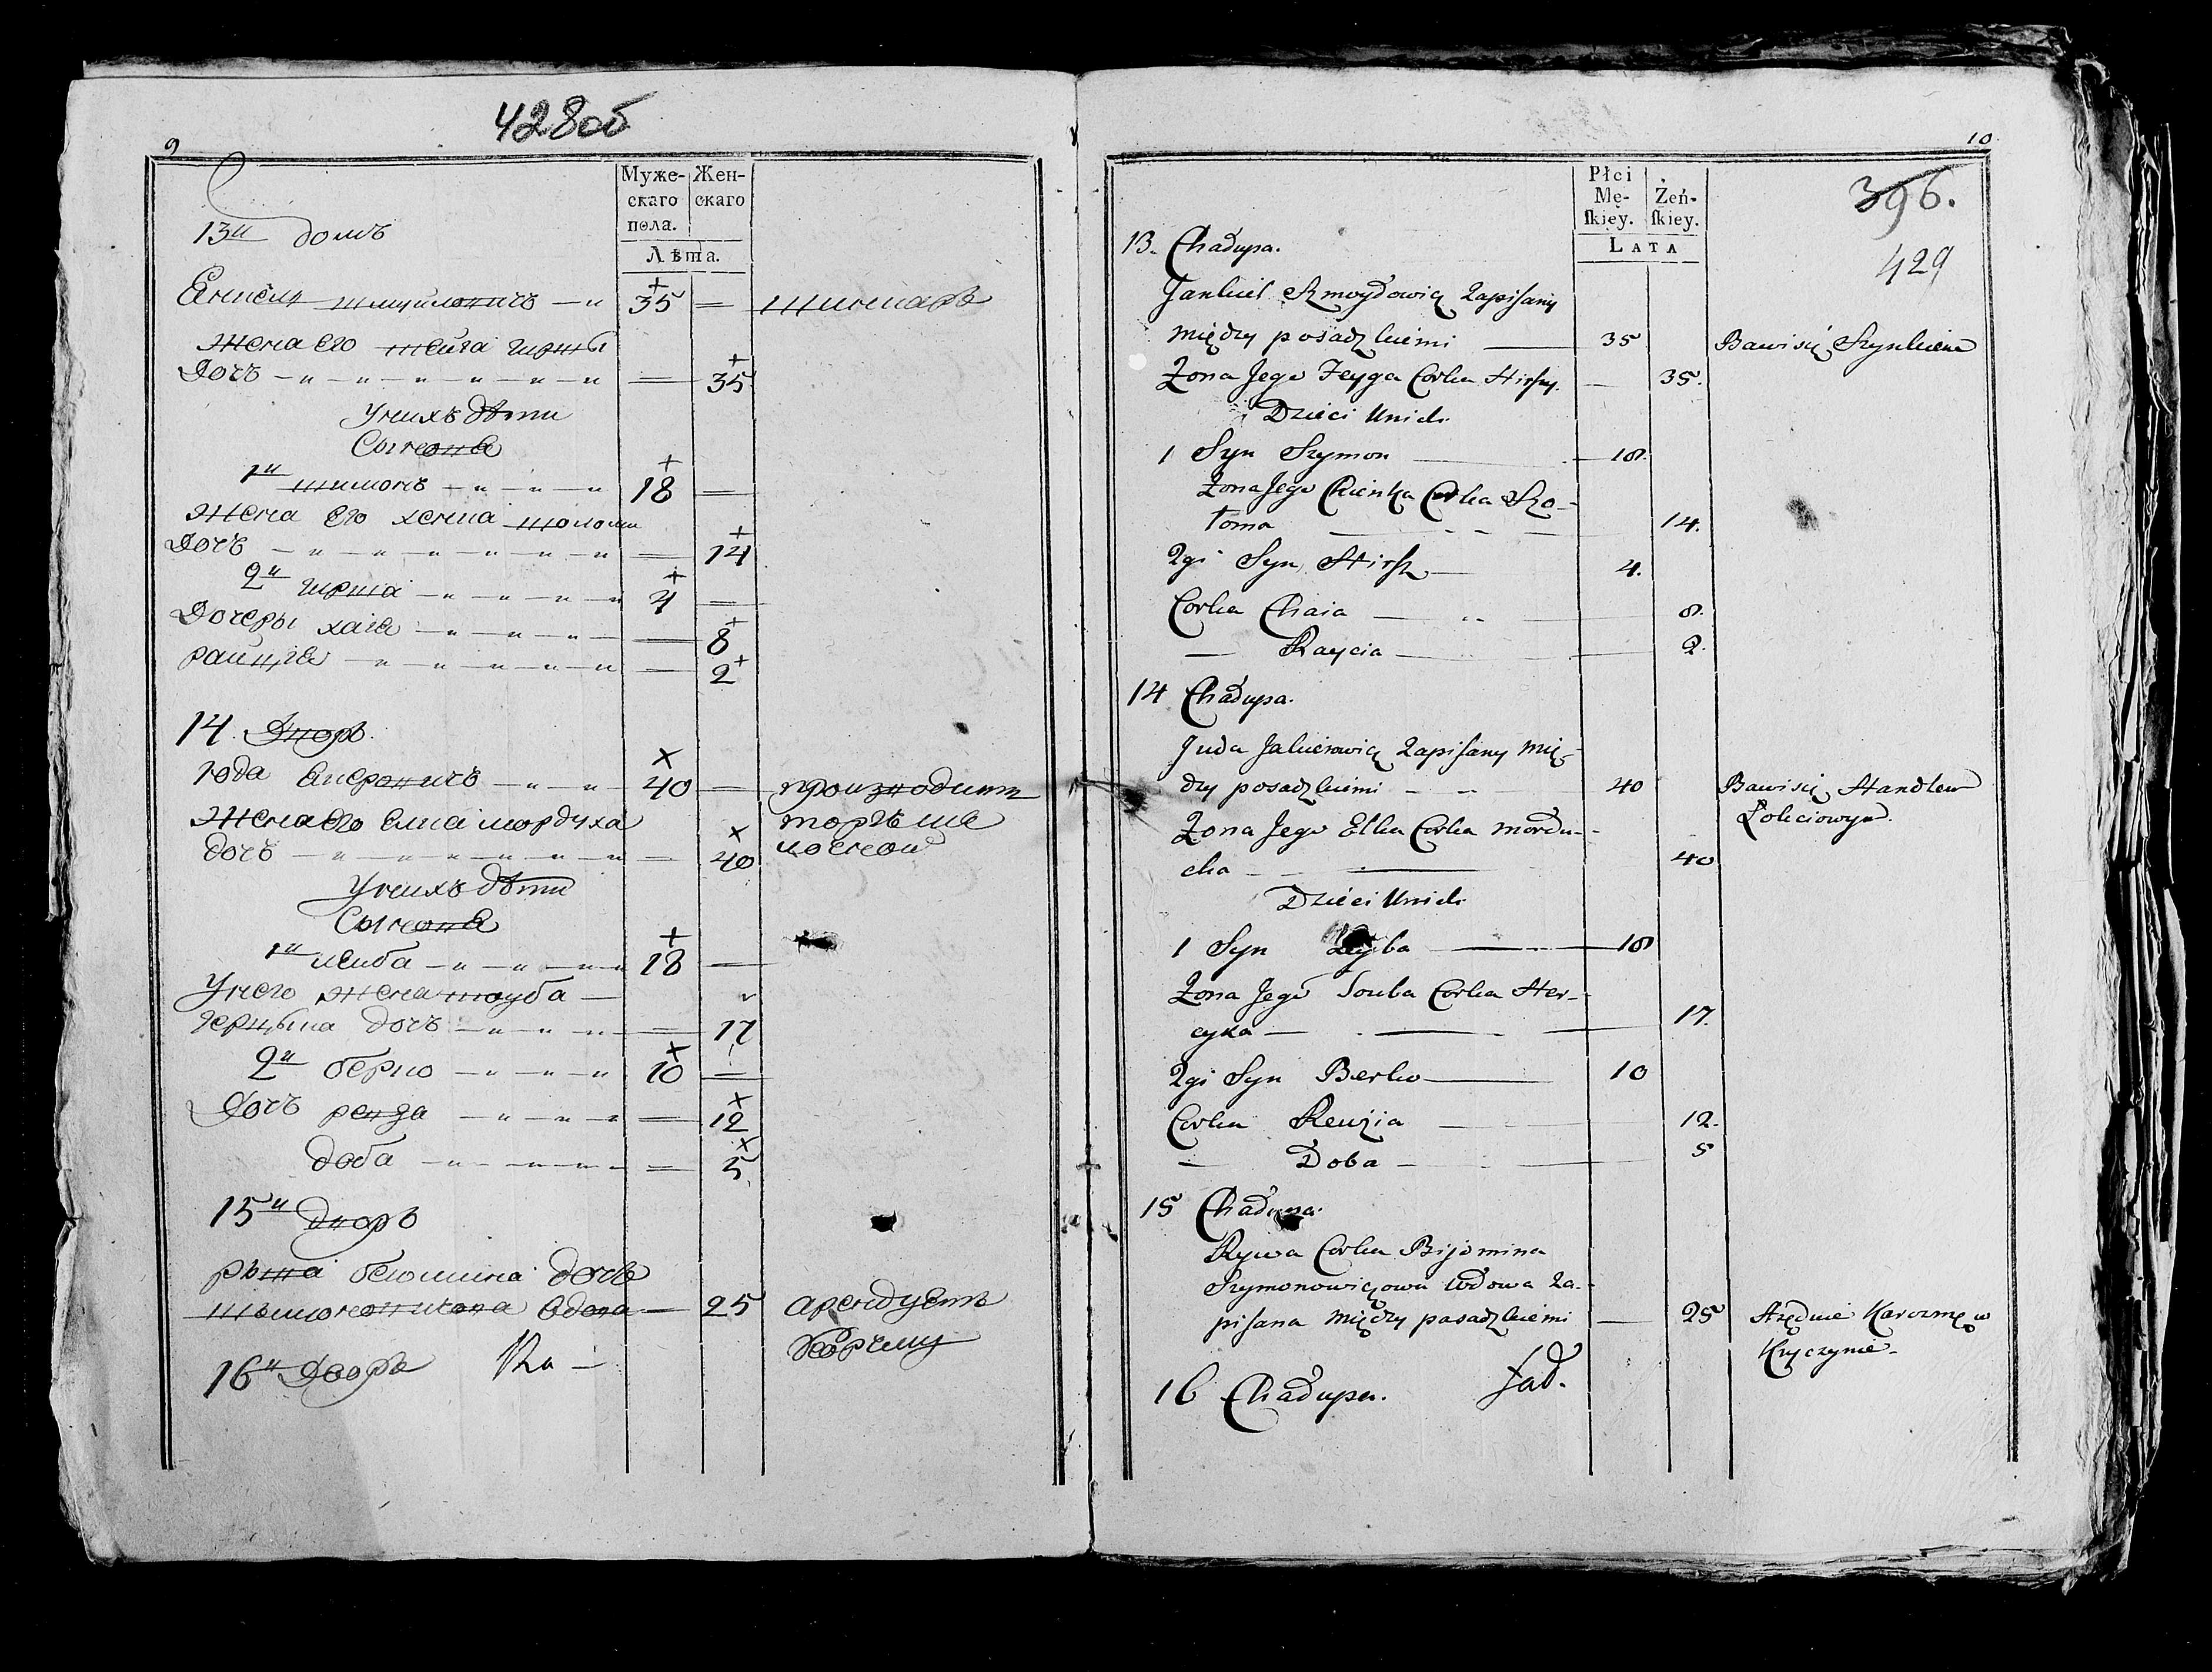 428об
9
Муже- Жен-
скаго скаго
пола.
Лѣта.
13й домъ
Енкель шмуйловичъ 35 шинкаръ
жена его фейга гирши
дочъ 35
У них дѣти
Сыновѣ
1й шимонъ 18
жена его хенка шолома
дочъ 14
2й гирша 4
дочеры хаие 8
райца 2
14. дворъ
юда 40 производит
жена его елка мордуха торгъ ло
дочъ 40 косной
У них дѣти
Сыновѣ
1й лейба 18
У него жена тоуба
герцыка дочъ 17
2й берко 10
дочъ рейза 12
доба 5
15й дворъ
рыва беюмина дочь
шымоновичова вдова 25 арендуетъ
корчму
16й дворъ
10
Płci
Mę- Żeń-
skiey. skiey.
LATA
396.
429
13. Chałupa.
Jankiel Szmoyłowicz zapisany
między posadzkiemi 35 Bawi się Szynkiem
Żona Jego Feyga Corka Hirszy. 35.
Dzieci U nich
1 Syn Szymon 18.
Żona Jego Chienka Corka Szo-
łoma 14.
2gi Syn Hirsz 4.
Corka Chaia 8.
Raycia 2.
14 Chałupa.
Juda zapisany mię-
dzy posadzkiemi 40 Bawi się Handlem
Żona Jego Elka Corka Mordu- Łokciowym.
cha 40
Dzieci U nich
1 Syn Leyba 18
Żona Jego Touba Corka Her-
cyka 17.
2gi Syn Berko 10
Corka Reyzia 12.
Doba 5
15 Chałupa.
Rywa Corka Bijomina
Szymonowiczowa wdowa za-
pisana między posadzkiemi 25 Karczmę w
16 Chałupa.